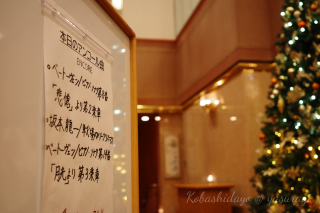 本日のアンコール曲
ENCORE
ベートーヴェン/ピアノソナタ第8番
「悲愴」より第2楽章
坂本龍一/戦場のメリークリスマス
ベートーヴェン/ピアノソナタ第14番
「月光」より第3楽章
Kobashidayo @ yasuragi